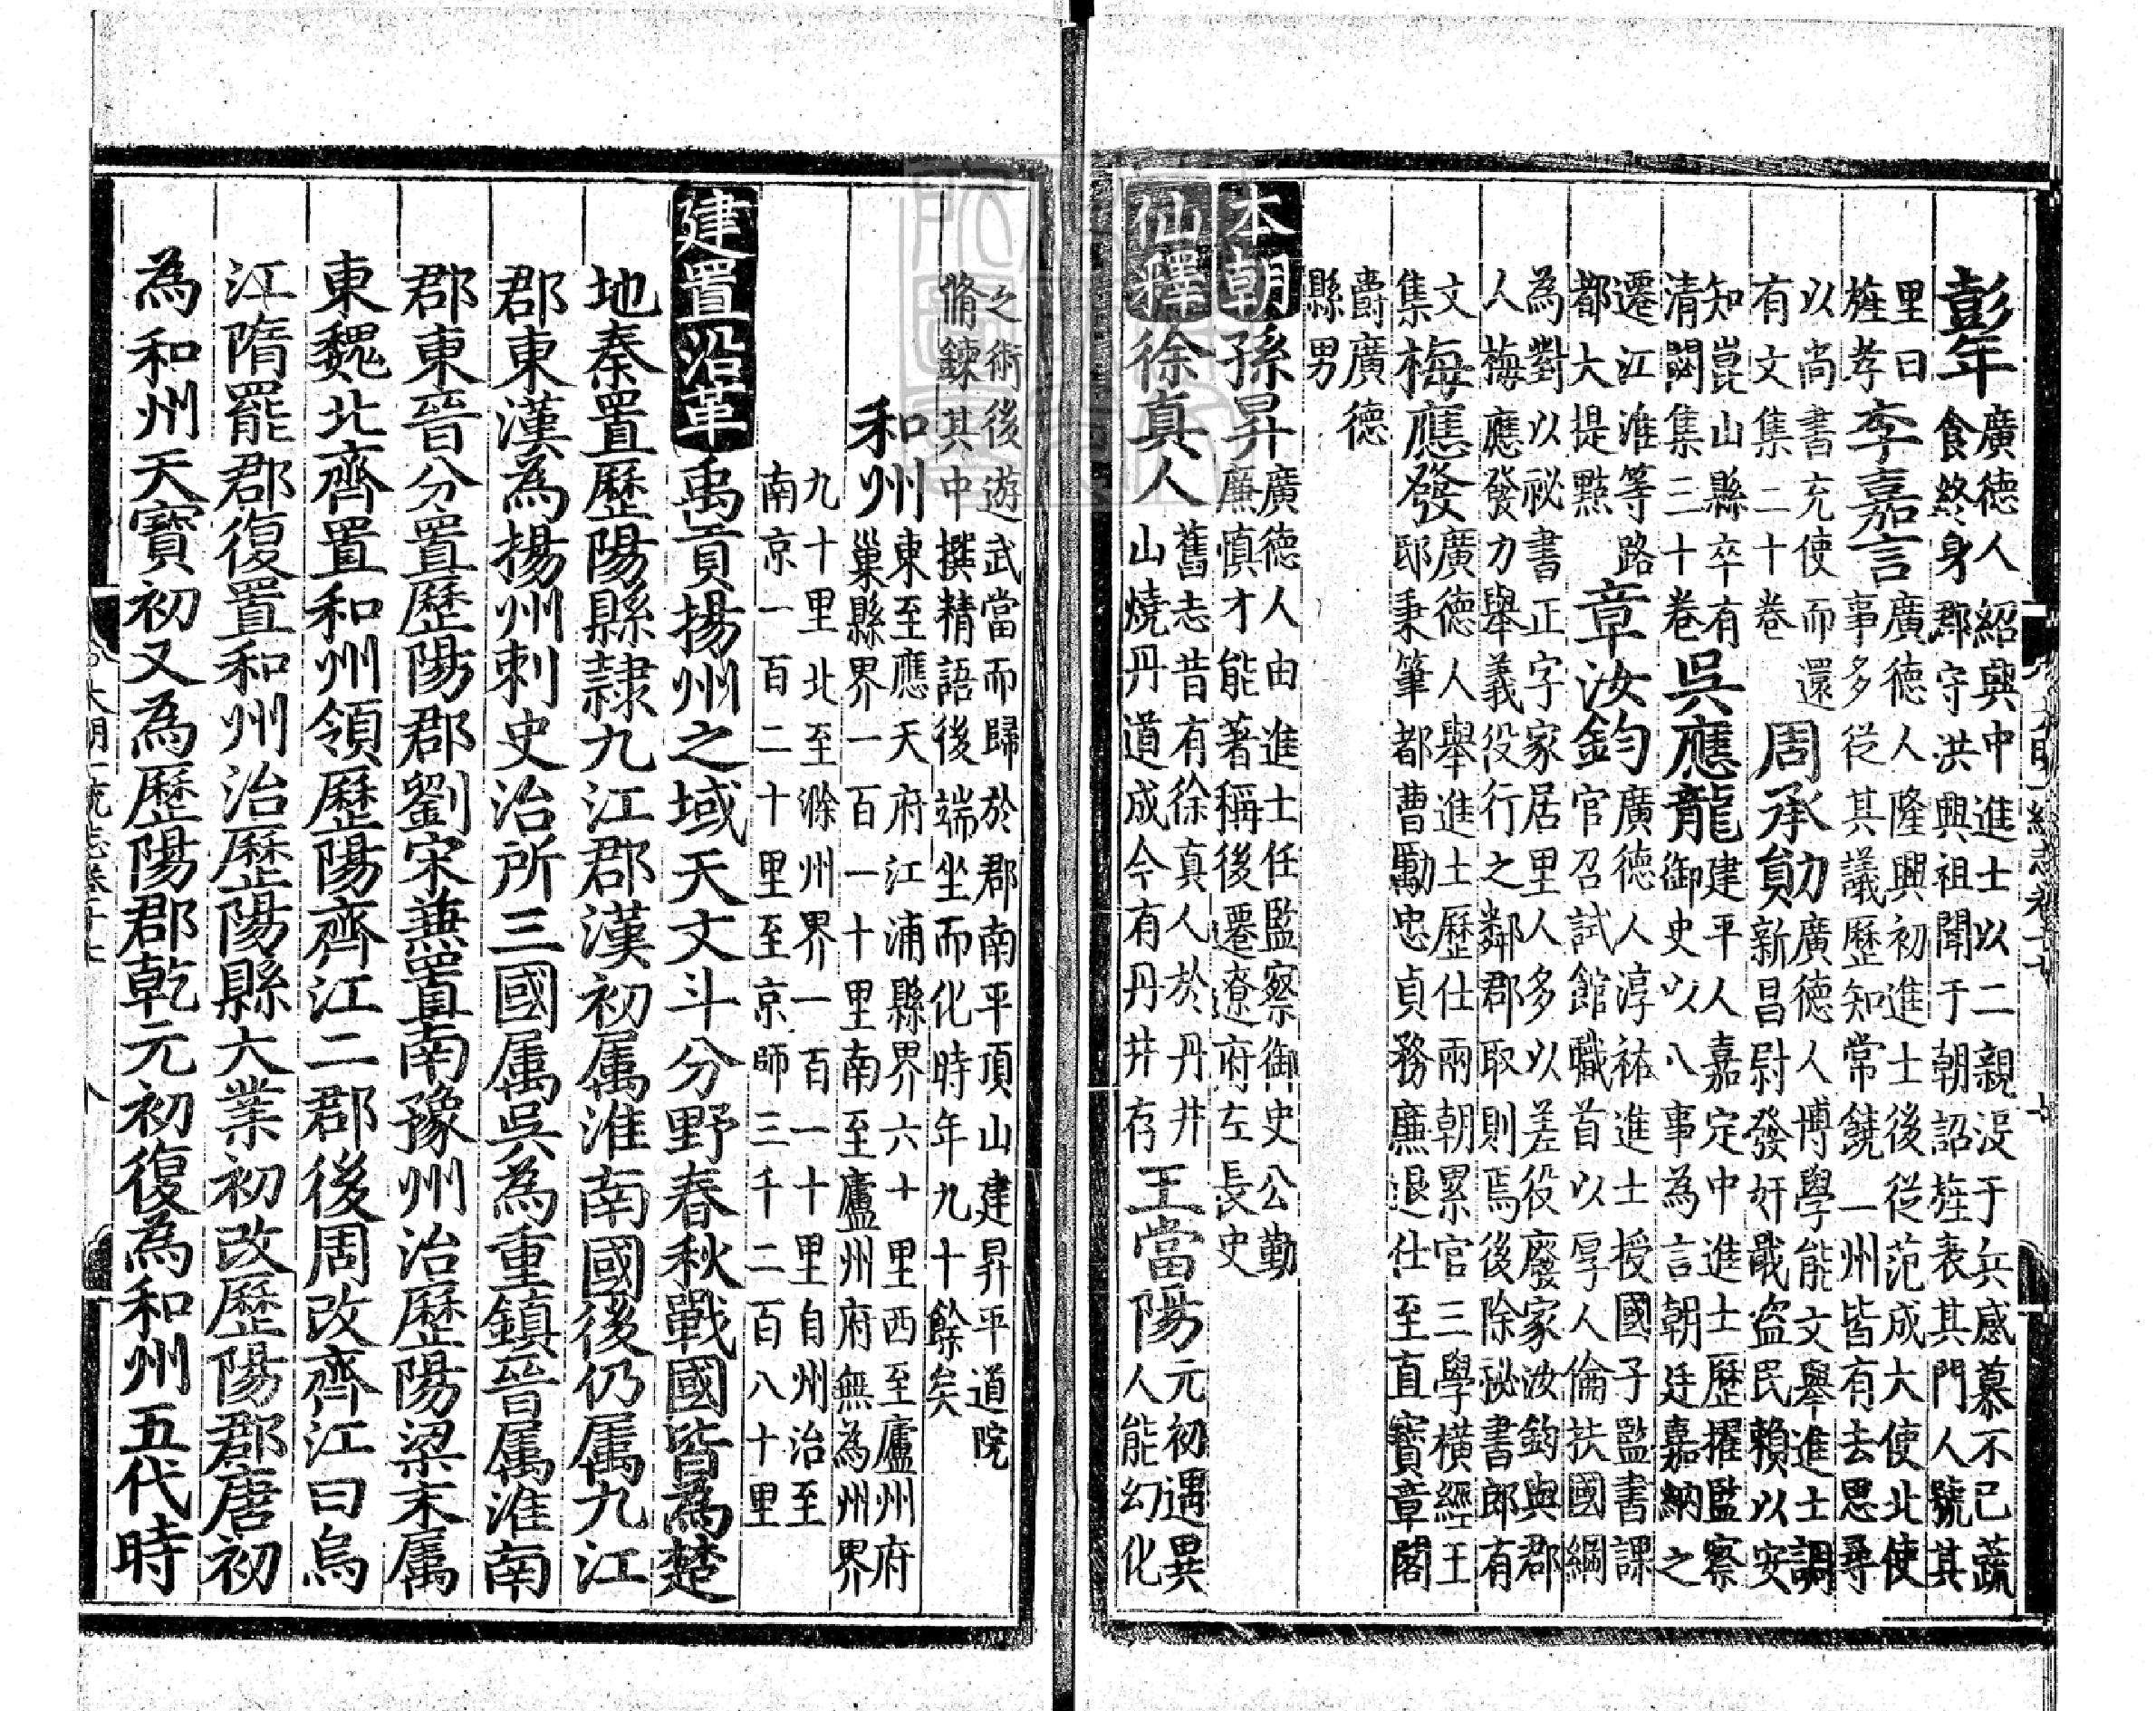 彭年廣德人紹興中進士以二親沒于兵感慕不已蔬
食終身郡守洪興祖聞于朝詔旌表其門人號其
里曰
旌孝李嘉言廣德人隆興初進士後從范成大使北使
事多從其議歷知常饒一州皆有去思尋
以尚書充使而還
有文集二十卷周承勛廣德人博學能文舉進士調
新昌尉發奸戢盗民賴以安
知崑山縣卒有
清閟集三十卷吳應龍建平人嘉定中進士歷擢監察
御史以八事為言朝廷嘉納之
遷江淮等路
都大提點章汝鈞廣德人淳祐進士授國子監書課
官召試館職首以厚人倫扶國綱
為對以祕書正字家居里人多以差役廢家汝鈞與郡
人梅應發力舉義役行之鄰郡取則焉後除祕書郎有
文
集梅應發廣德人舉進士歷仕兩朝累官三學橫經王
邸秉筆都曹勵忠貞務廉退仕至直寶章閣
爵廣德
縣男
本朝孫昇廣德人由進士任監察御史公勤
廉慎才能著稱後遷遼府左長史
仙釋徐真人舊志昔有徐真人於丹井
山燒丹道成今有丹井存王當陽元初遇異
人能幻化
之術後遊武當而歸於郡南平頂山建昇平道院
脩鍊其中撰精語後端坐而化時年九十餘矣
和州東至應天府江浦縣界六十里西至廬州府
巢縣界一百一十里南至廬州府無為州界
九十里北至滁州界一百一十里自州治至
南京一百二十里至京師三千二百八十里
建置沿革禹貢揚州之域天文斗分野春秋戰國皆為楚
地秦置歷陽縣隷九江郡漢初属淮南國後仍属九江
郡東漢為揚州刺史治所三國属吳為重鎮晉属淮南
郡東晉分置歷陽郡劉宋兼置南豫州治歷陽梁末属
東魏北齊置和州領歷陽齊江二郡後周改齊江曰烏
江隋罷郡復置和州治歷陽縣大業初改歷陽郡唐初
為和州天寶初又為歷陽郡乾元初復為和州五代時